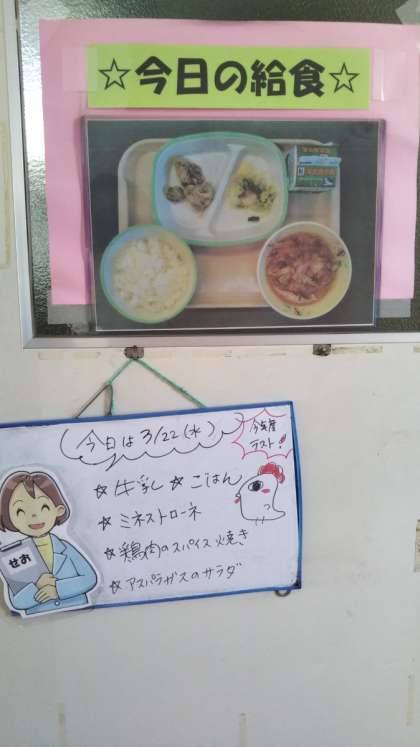 ☆今日の給食☆
今日は 3/22(水)
今年度
ラスト!
☆ 牛乳 ☆ ごはん
☆ ミネストローネ
☆ 鶏肉のスパイス焼き
☆ アスパラガスのサラダ
せお